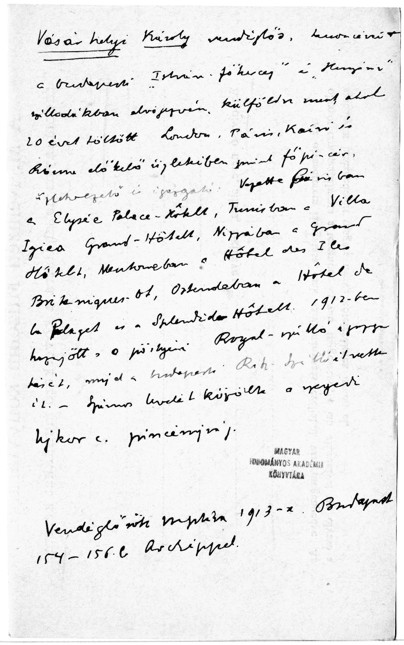 Vásárhelyi Károly vendéglős,
a budapesti "István főherceg" és "Hungária"
szállodákban elvégezvén, külföldre ment ahol
20 évet töltött London, Páris, Kairó és
Róma előkelő üzleteiben mint főpincér,
üzletvezető és igazgató. Vezette Párisban
a Elysée Palace-Hôtelt, Tunisban a Villa
Igiea Grand-Hôtelt, Nizzában a Grand
Hôtelt, Mentoneban a Hôtel des Iles
Britanniques-ot, Ostendeban a Hôtel de
la Plaget és a Splendide Hôtelt. 1912-ben
a Royal-szálló
majd a budapesti Ritz szállót vette
át. - Számos levelét közölte a szegedi
Újkor c. pincérújság.
MAGYAR
TUDOMÁNYOS AKADÉMIA
KÖNYVTÁRA
Vendéglősök naptára 1913-ra. Budapest
154-156. l. Arcképpel.